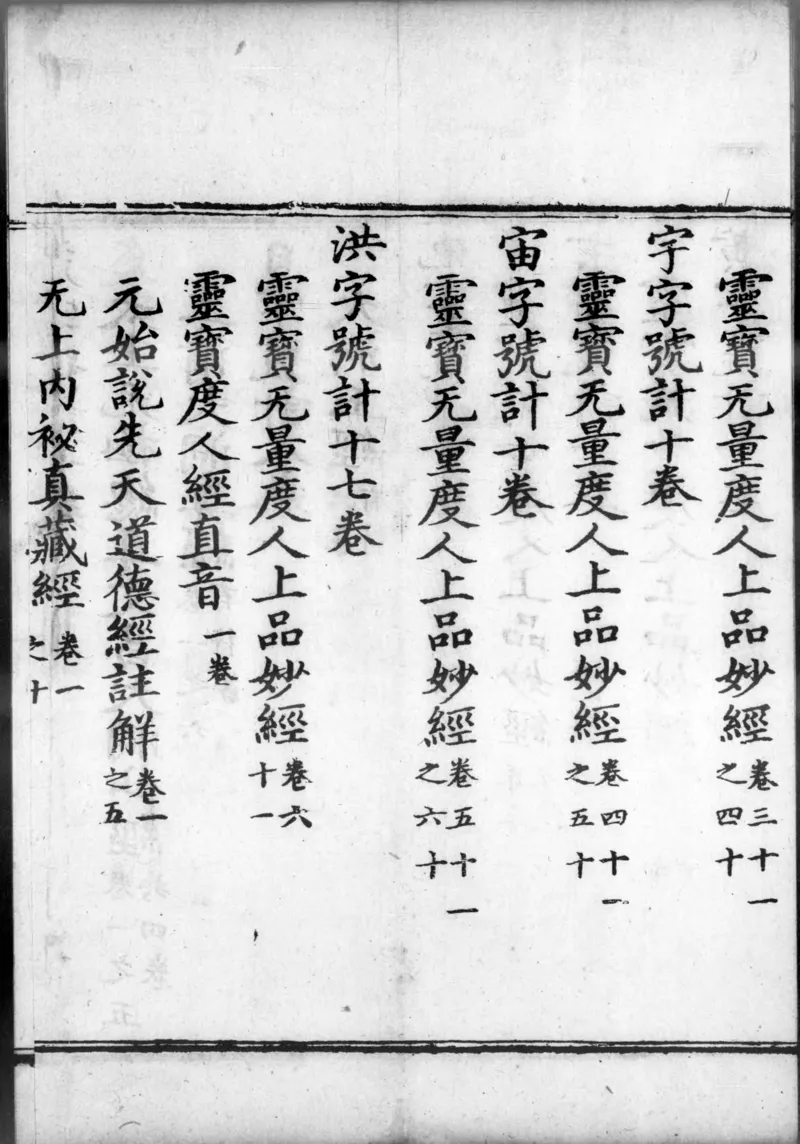 靈寶无量度人上品妙經卷三十一之四十
宇字號計十卷
靈寶无量度人上品妙經卷四十一之五十
宙字號計十卷
靈寶无量度人上品妙經卷五十一之六十
洪字號計十七卷
靈寶无量度人上品妙經卷六十一
靈寶度人經直音一卷
元始說先天道德經註解卷一之五
无上內祕真藏經卷一之十